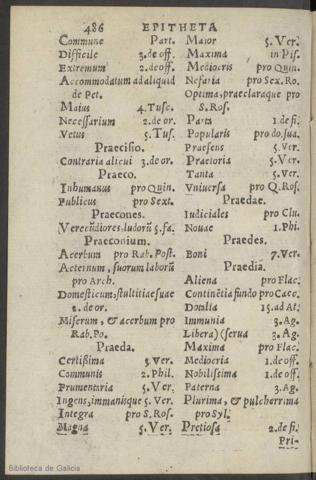 486 EPITHETA
Commune Part.
Difficile 3.de off.
Extremum 2.de off.
Accommodatum ad aliquid
de Pet.
Maius 4.Tusc.
Necessarium 2.de or.
Vetus 5.Tus.
Praecisio.
Contraria alicui 3.de or.
Praeco.
Inhumanus pro Quin.
Publicus pro Sext.
Praecones.
Verecūdiores, ludorū 5.fa.
Praeconium.
Acerbum pro Rab. Post.
Aeternum, suorum laborū
pro Arch.
Domesticum, stultitiae suae
2.de or.
Miserum, & acerbum pro
Rab.Po.
Praeda.
Certissima 5.Ver.
Communis 2.Phil.
Frumentaria 5.Ver.
Ingens, immanisque 5.Ver.
Integra pro S.Ros.
Magna 5.Ver.
Maior 5.Ver.
Maxima in Pis.
Mediocris pro Quin.
Nefaria pro Sex.Ro.
Optima, praeclaraque pro
S.Ros.
Parta 1.de fi.
Popularis pro do.sua.
Praesens 5.Ver.
Praetoria 5.Ver.
Tanta 5.Ver.
Vniuersa pro Q.Ros.
Praedae.
Iudiciales pro Clu.
Nouae 1.Phi.
Praedes.
Boni 7.Ver.
Praedia.
Aliena pro Flac.
Continētia fundo pro Caec.
15.ad At.
Immunia 3.Ag.
Libera) (serua 3.Ag.
Maxima pro Flac.
Mediocria 1.de off.
Nobilissima 1.de off.
Paterna 3.Ag.
Plurima, & pulcherrima
pro Syl.
Pretiosa 2.de fi.
Pri-
Biblioteca de Galicia